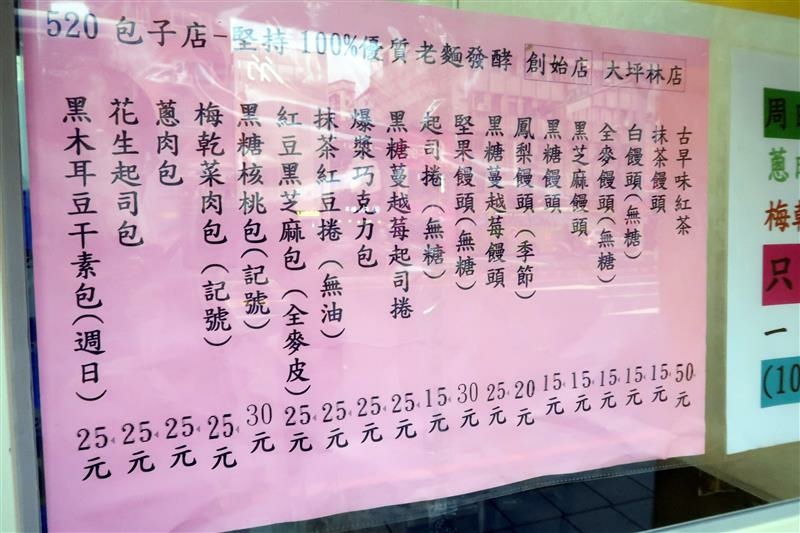 520 包子店-堅持 100%優質老麵發酵 創始店 大坪林店
古早味紅茶 50元
抹茶饅頭 15元
白饅頭(無糖) 15元
全麥饅頭(無糖) 15元
黑芝麻饅頭 15元
黑糖饅頭 15元
鳳梨饅頭(季節) 20元
黑糖蔓越莓饅頭 25元
堅果饅頭(無糖) 30元
起司捲(無糖) 15元
黑糖蔓越莓起司捲 25元
爆漿巧克力包 25元
抹茶紅豆捲(無油) 25元
紅豆黑芝麻包(全麥皮) 25元
黑糖核桃包(記號) 30元
梅乾菜肉包(記號) 25元
蔥肉包 25元
花生起司包 25元
黑木耳豆干素包(週日) 25元
周
蔥
梅
只
一
(10